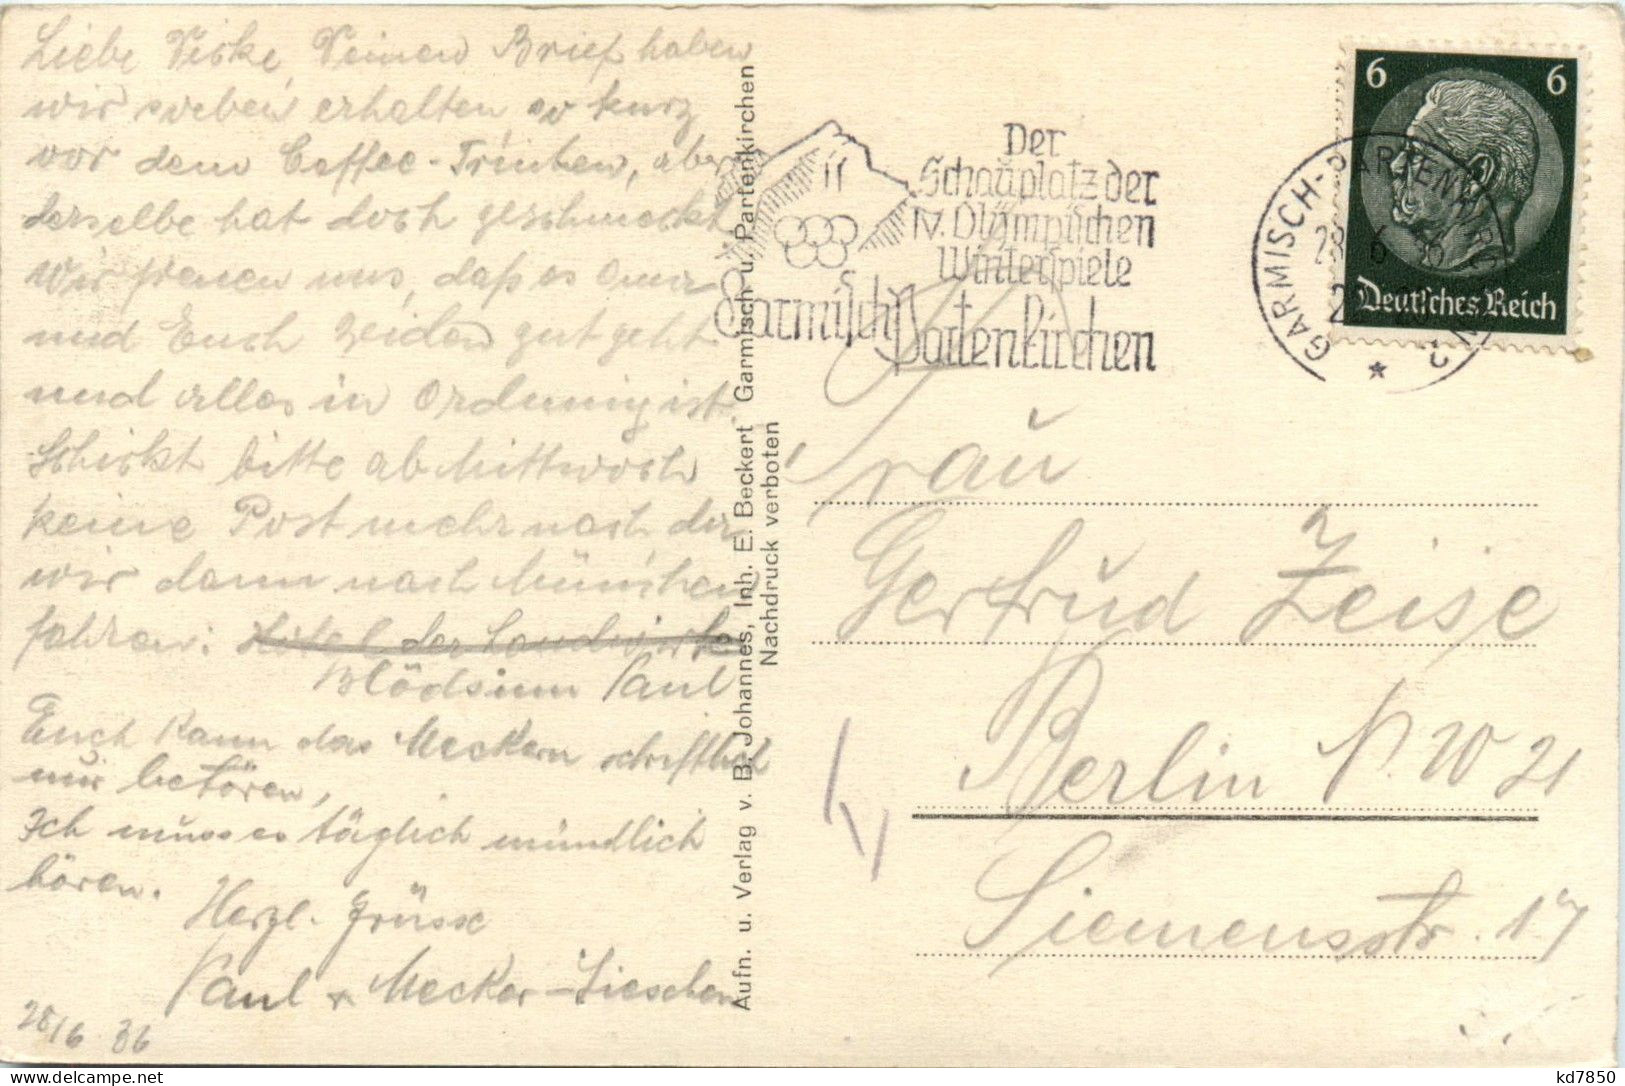 Liebe Deike, Deinen Brief haben
wir soeben erhalten so kurz
vor dem Caffee-Trinken, aber
derselbe hat doch geschmeckt
Wir freuen uns, daß es Oma
und Euch beiden gut geht
und alles in Ordnung ist.
Schickt bitte ab Mittwoch
keine Post mehr nach der
wir dann nach München
fahren: Hotel der Landwirte
Blödsinn Paul
Euch kann das Meckern schriftlich
nur betören,
Ich muss es täglich mündlich
hören.
Herzl. Grüsse
Paul + Mecker-Lieschen
28/6 36
Aufn. u. Verlag v. B. Johannes, Inh. E. Beckert Garmisch u. Partenkirchen
Nachdruck verboten
Der
Schauplatz der
IV. Olympischen
Winterspiele
Garmisch Partenkirchen
6 6
Deutsches Reich
GARMISCH-PARTENKIRCHEN 2
28 6 36
Frau
Gertrud Zeise
Berlin N.W 21
Siemensstr. 17
kd7850